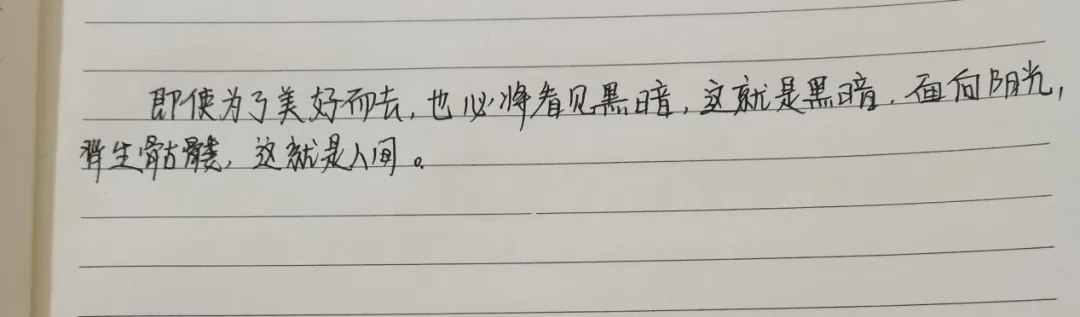 即使为了美好而去，也必将看见黑暗，这就是黑暗．面向阳光，
背生骷髅，这就是人间。